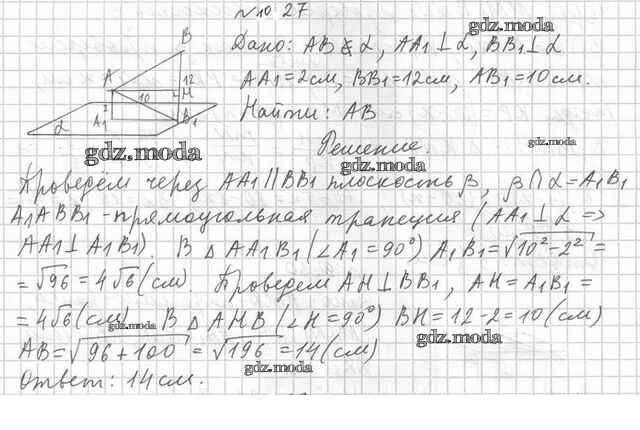 №10.27
gdz.moda
Дано: AB ⊄ α, AA1 ⊥ α, BB1 ⊥ α
AA1 = 2см, BB1 = 12см, AB1 = 10см.
Найти: AB
Решение.
B
A
12
H
10
2
A1
B1
α
gdz.moda
gdz.moda
gdz.moda
Проведём через AA1 || BB1 плоскость β, β ∩ α = A1B1
A1ABB1 - прямоугольная трапеция (AA1 ⊥ α =>
AA1 ⊥ A1B1). В △ AA1B1 (∠A1 = 90°) A1B1 = √10² - 2² =
= √96 = 4√6 (см). Проведем AH ⊥ BB1, AH = A1B1 =
= 4√6 (см). В △ AHB (∠H = 90°) BH = 12 - 2 = 10 (см)
gdz.moda
AB = √96 + 100 = √196 = 14 (см)
gdz.moda
Ответ: 14 см.
gdz.moda